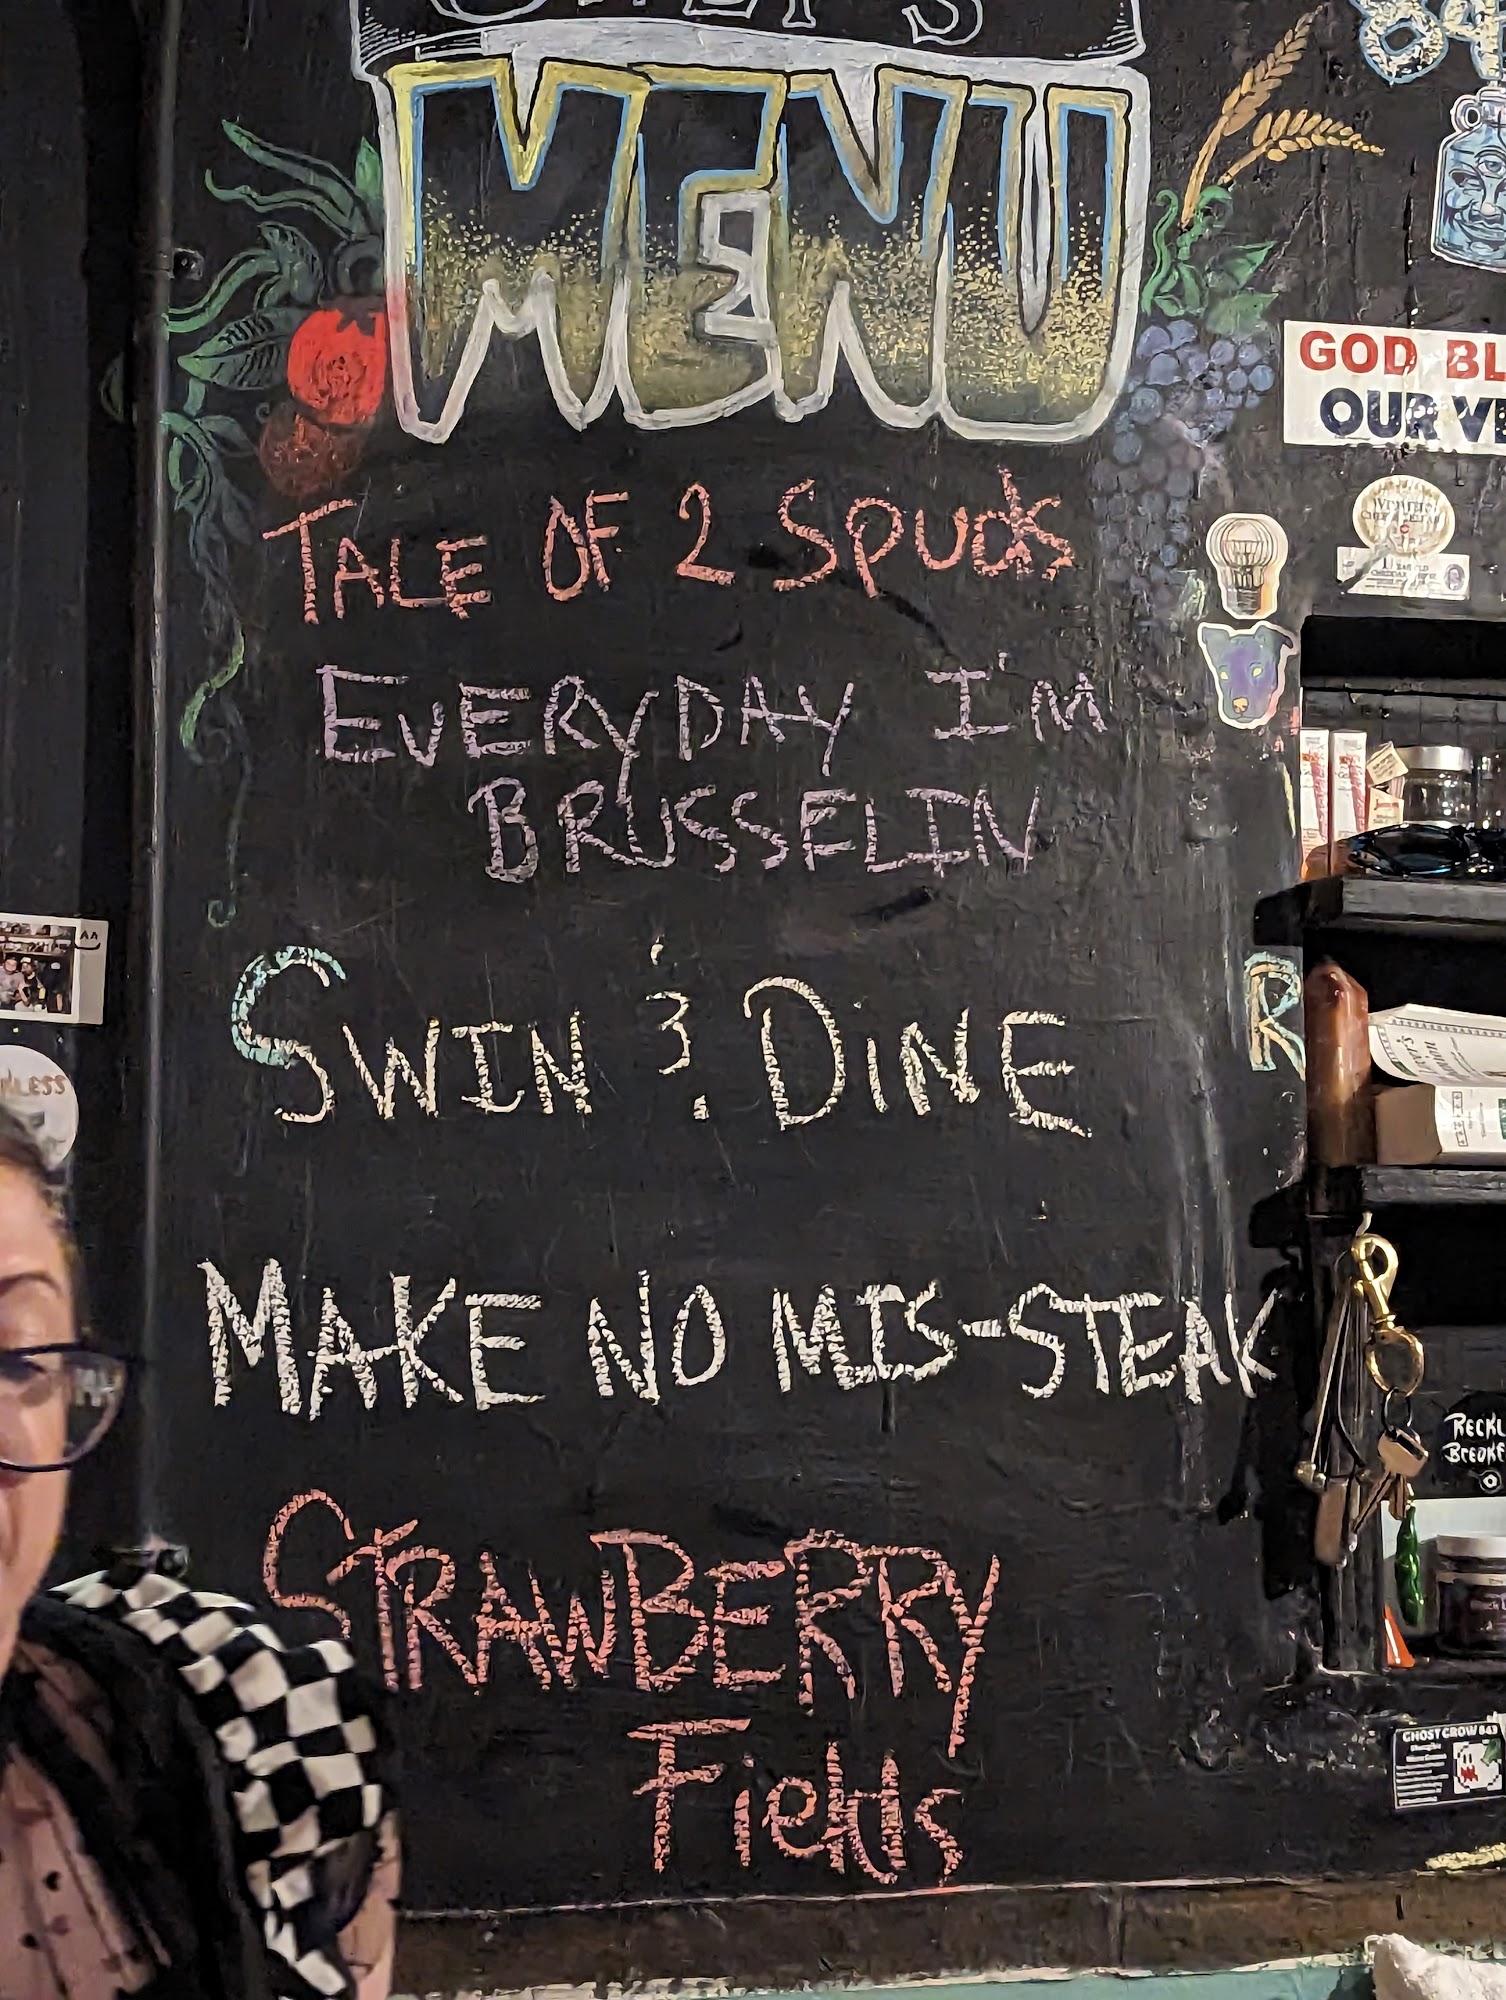 MENU
TALE OF 2 SPUdS
EVERYDAY I'M
BRUSSELIN
SWIN & DiNE
MAKE NO MIS-STEAK
STRAWBERRY
Fields
GOD BL
OUR VE
AA
R
RECKL
GHOST CROW 843